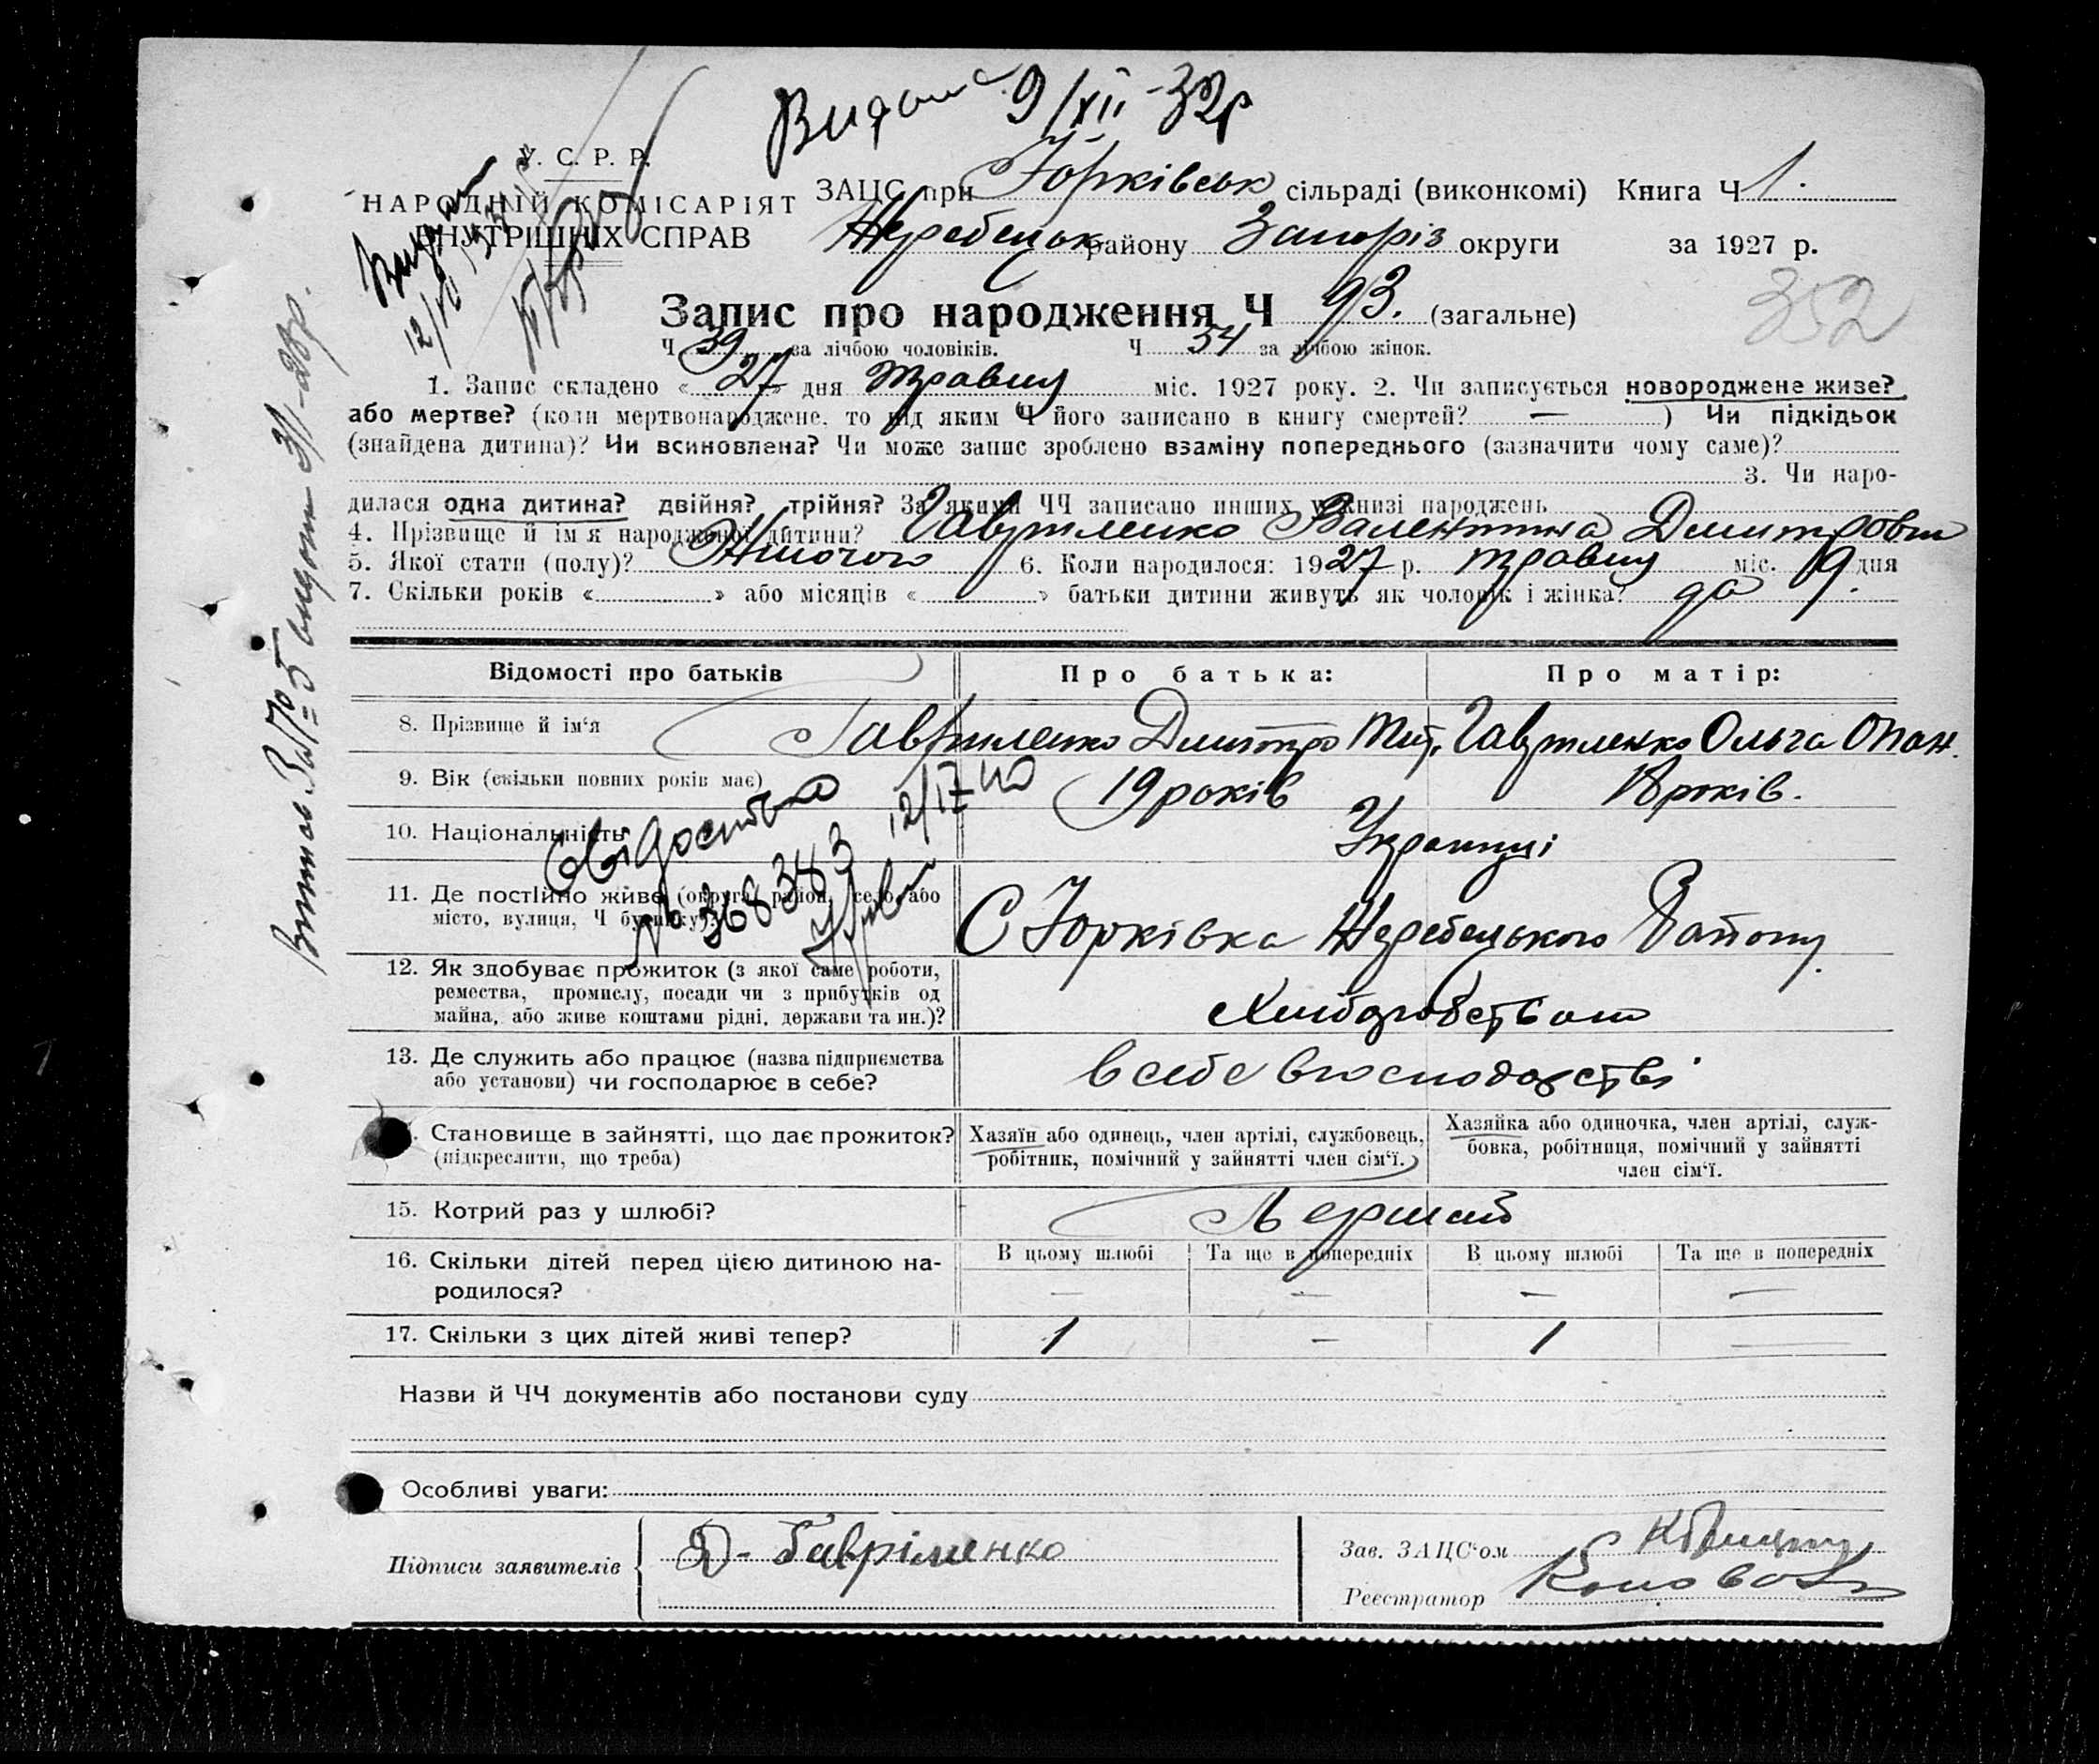 Видана 9/XII-32р
У. С. Р. Р.
НАРОДНІЙ КОМІСАРІЯТ
ВНУТРІШНІХ СПРАВ
ЗАЦС при Юрківськ сільраді (виконкомі) Книга Ч 1.
Жеребецьк району Запоріз округи за 1927 р.
Запис про народження Ч 93. (загальне)
352
Ч 39 за лічбою чоловіків. Ч 54 за лічбою жінок.
1. Запис складено « 27 » дня травня міс. 1927 року. 2. Чи записується новороджене живе?
або мертве? (коли мертвонароджене, то під яким Ч його записано в книгу смертей? — ) Чи підкідьок
(знайдена дитина)? Чи всиновлена? Чи може запис зроблено взаміну попереднього (зазначити чому саме)?
3. Чи наро-
дилася одна дитина? двійня? трійня? За якими ЧЧ записано инших у книзі народжень
4. Прізвище й ім'я народженої дитини? Гавриленко Валентина Дмитровна
5. Якої стати (полу)? Жіночого 6. Коли народилося: 1927 р. травня міс. 19 дня
7. Скільки років « » або місяців « » батьки дитини живуть як чоловік і жінка? да
Відомості про батьків Про батька: Про матір:
8. Прізвище й ім'я Гавриленко Дмитро Мит. Гавриленко Ольга Опан.
9. Вік (скільки повних років має) 19 років 18 років.
10. Національність Українці
Свідоцтво
№ 368383 12/IV 40
11. Де постійно живе (округа, район, село, або
місто, вулиця, Ч будинку)? С Юрківка Жеребецького Району.
12. Як здобуває прожиток (з якої саме роботи,
ремества, промислу, посади чи з прибутків од
майна, або живе коштами рідні, держави та ин.)? Хліборобством
13. Де служить або працює (назва підприємства
або установи) чи господарює в себе? В себе в господарстві
Становище в зайнятті, що дає прожиток?
(підкреслити, що треба)
Хазяїн або одинець, член артілі, службовець,
робітник, помічний у зайнятті член сім'ї.
Хазяйка або одиночка, член артілі, служ-
бовка, робітниця, помічний у зайнятті
член сім'ї.
15. Котрий раз у шлюбі? Первий
16. Скільки дітей перед цією дитиною на-
родилося?
В цьому шлюбі Та ще в попередніх В цьому шлюбі Та ще в попередніх
— — — —
17. Скільки з цих дітей живі тепер? 1 — 1 —
Назви й ЧЧ документів або постанови суду
Особливі уваги:
Підписи заявителів Д. Гавріленко
Зав. ЗАЦС'ом
Реєстратор